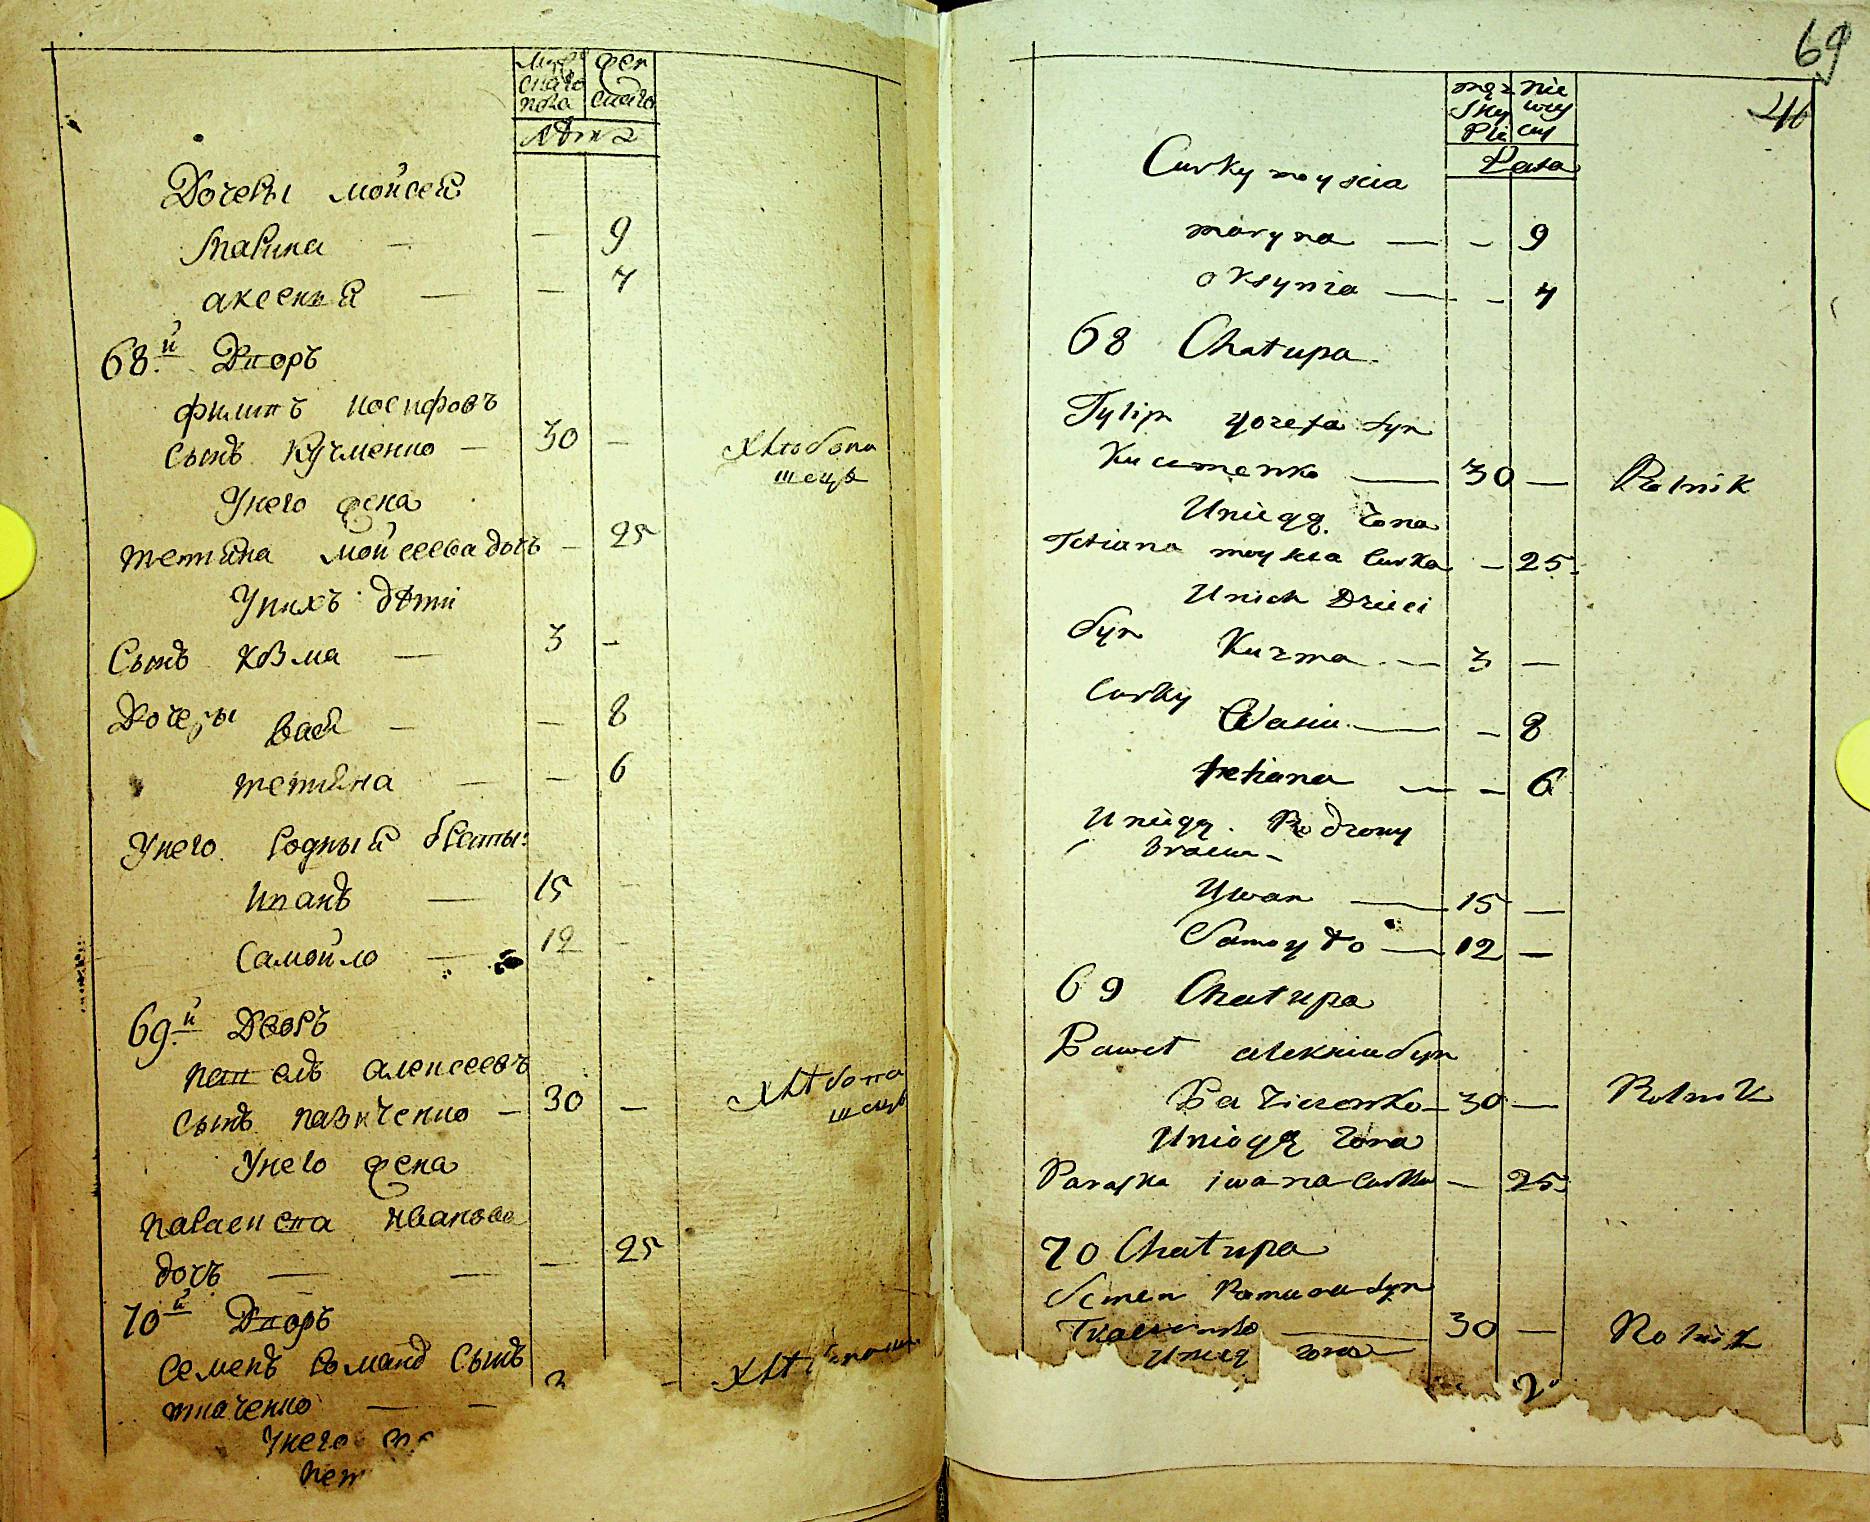 Мужескаго пола
Женскаго
Лѣта
Дочери мойсея
Марина — — 9
аксенья — — 7
68.й Дворъ
филипъ иосифовъ
сынъ Кучменко — 30 — Хлѣбопашецъ
Унего жена
тетяна мойсеева дочь — 25
Унихъ дѣти
Сынъ козма — 3 —
Дочери вася — — 8
тетяна — — 6
Унего родныя браты:
Иванъ — 15 —
самойло — 12 —
69.й Дворъ
павелъ алексеевъ
сынъ пазиченко — 30 — Хлѣбопашецъ
Унего жена
параскева иванова
дочь — — — 25
70й Дворъ
семенъ романа сынъ
ткаченко — —
Унего
пет
69
46
męzsky płci
niewiescy
Lata
Curky moysia
maryna — — 9
oksynia — — 7
68 Chałupa
Fylip yozefa syn
Kuczmenko — 30 — Rolnik
Uniego żona
Tetiana moysia Curka — 25
Unich Dzieci
Syn Kuzma — 3 —
Curky Wasia — — 8
tetiana — — 6
Uniego Rodzony
bracia —
Ywan — 15 —
Samoyło — 12 —
69 Chałupa
Paweł alexieia Syn
Paziczenko — 30 — Rolnik
Uniego żona
Paraska iwana Curka — 25
70 Chałupa
Semen Romana Syn
Tkaczenko — 30 — Rolnik
Unieg żona
2